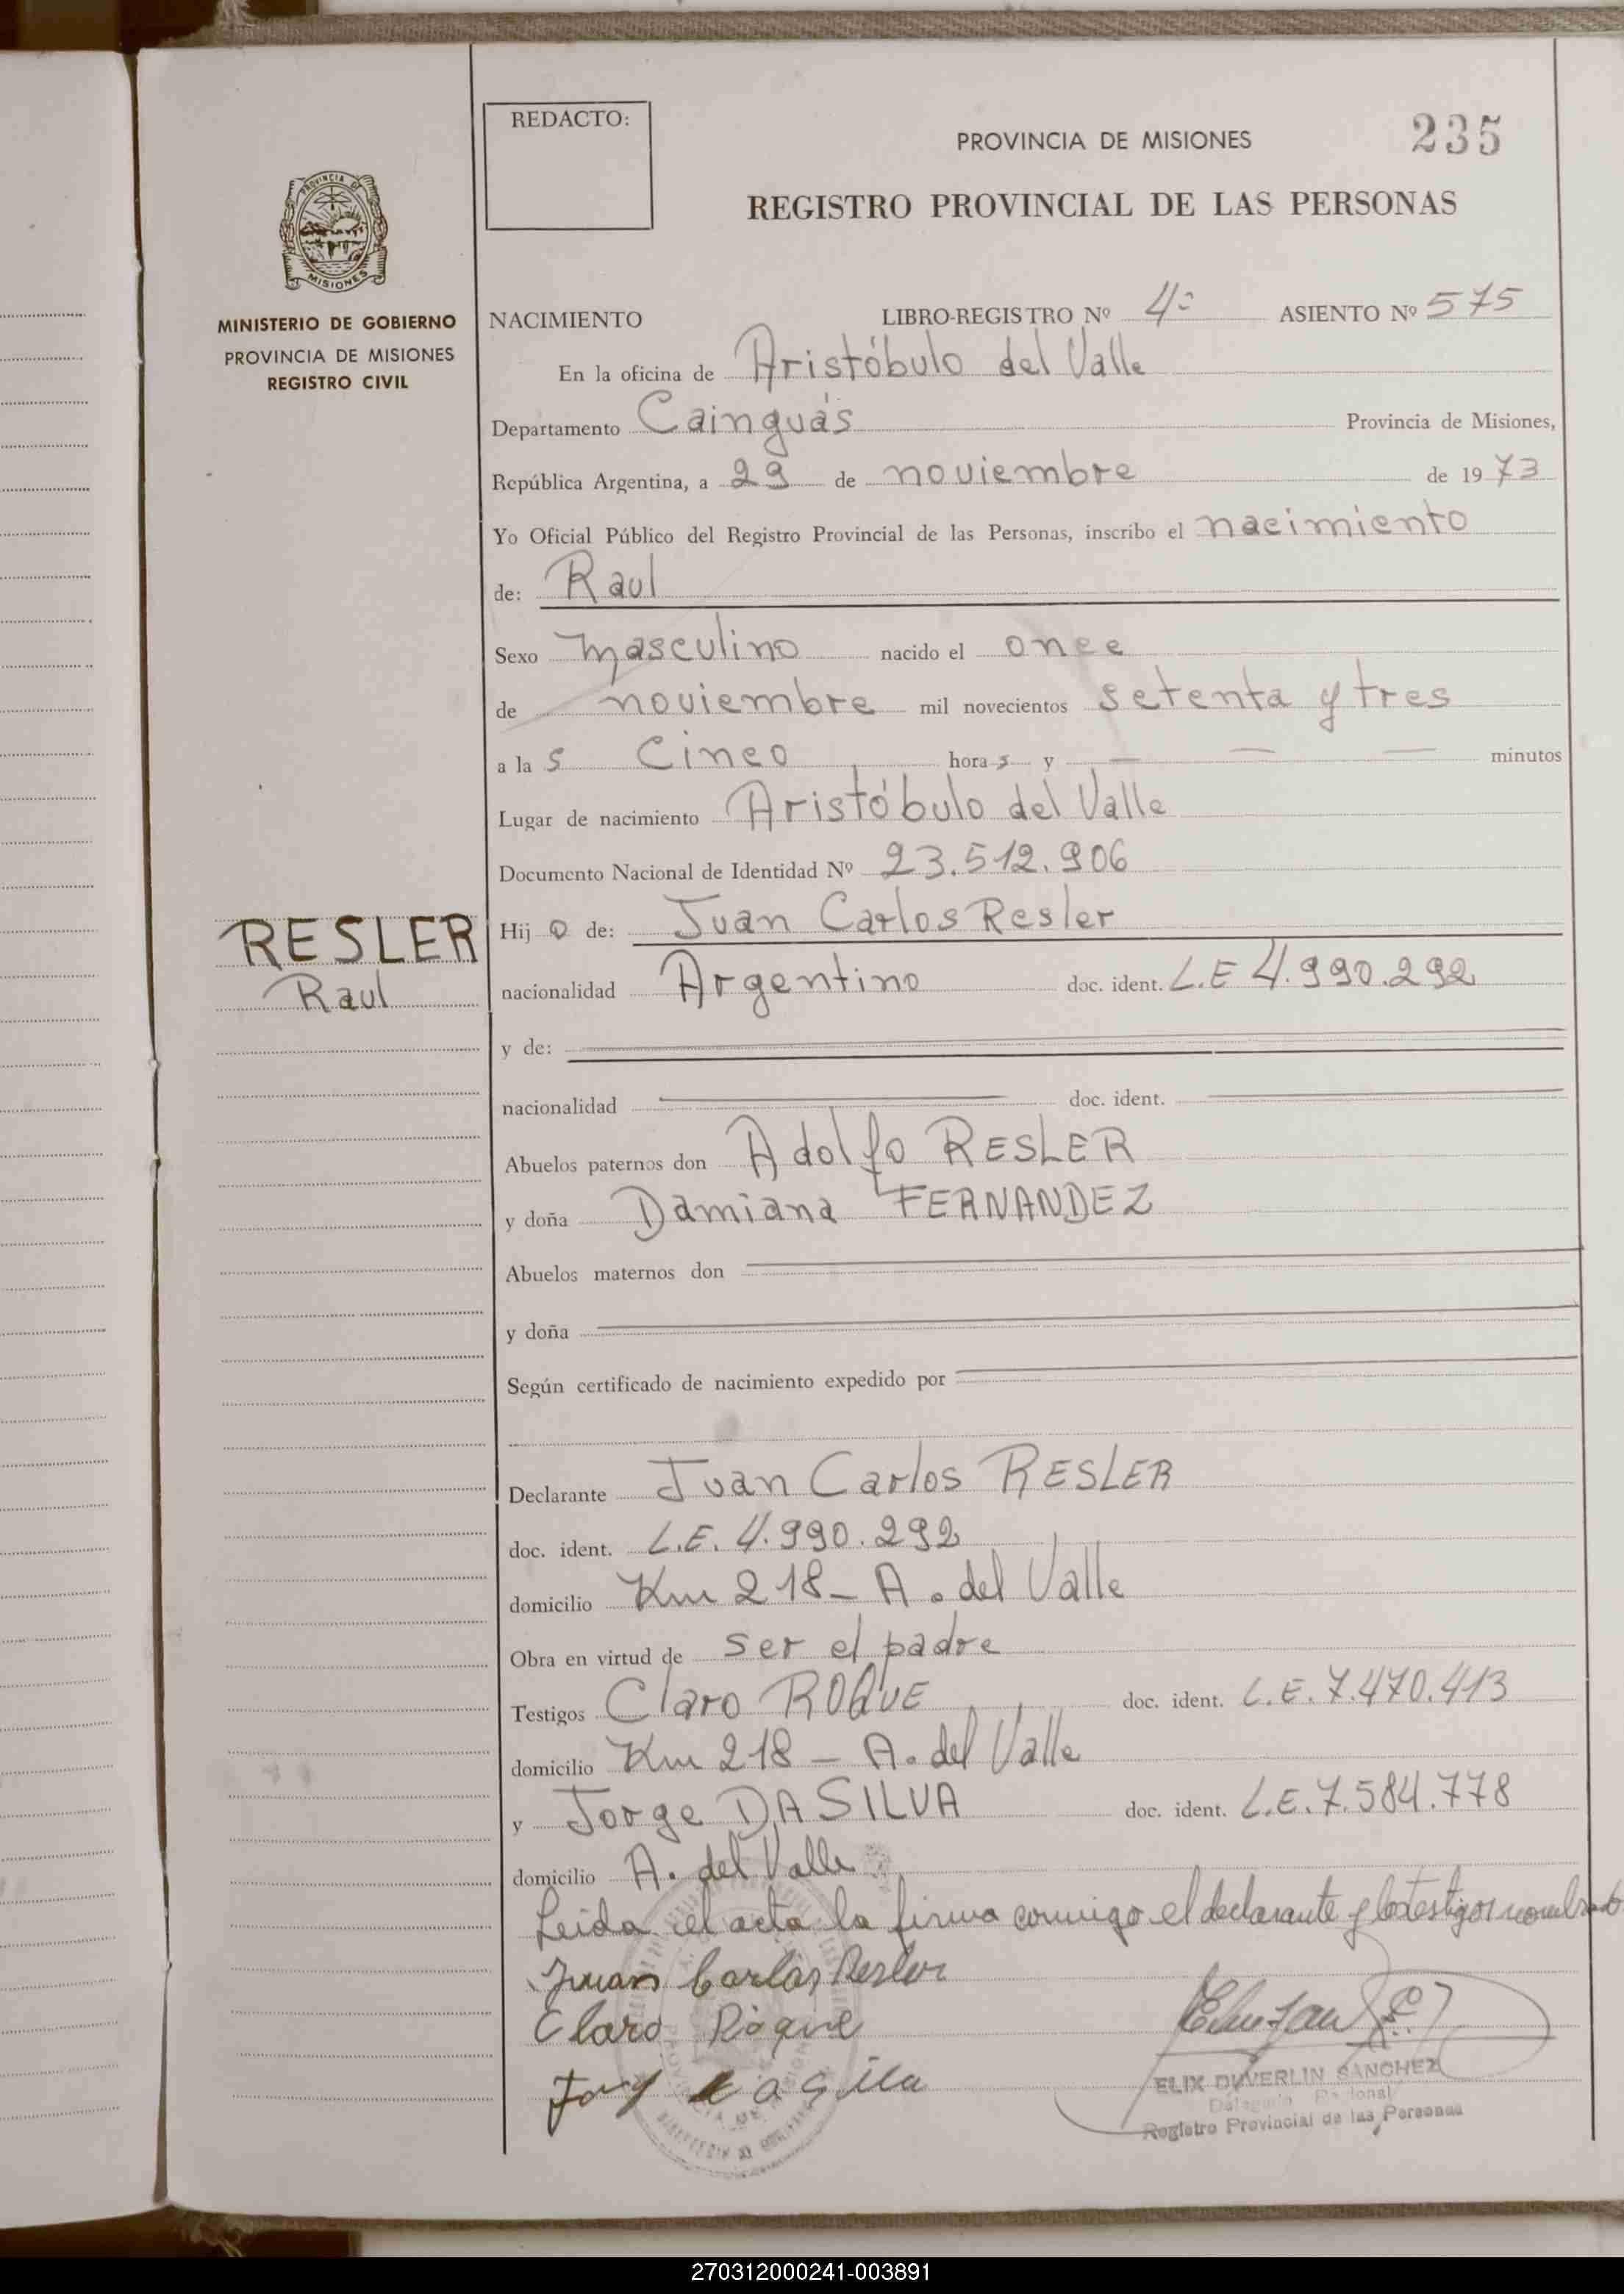 REDACTO:
PROVINCIA DE MISIONES
235
REGISTRO PROVINCIAL DE LAS PERSONAS
PROVINCIA DE
MISIONES
MINISTERIO DE GOBIERNO
PROVINCIA DE MISIONES
REGISTRO CIVIL
NACIMIENTO LIBRO-REGISTRO Nº 4º ASIENTO Nº 575
En la oficina de Aristóbulo del Valle
Departamento Cainguás Provincia de Misiones,
República Argentina, a 29 de noviembre de 1973
Yo Oficial Público del Registro Provincial de las Personas, inscribo el nacimiento
de: Raul
Sexo masculino nacido el once
de noviembre mil novecientos setenta y tres
a las cinco horas y — — — minutos
Lugar de nacimiento Aristóbulo del Valle
Documento Nacional de Identidad Nº 23.512.906
RESLER
Raul
Hijo de: Juan Carlos Resler
nacionalidad Argentino doc. ident. L.E 4.990.292
y de:
nacionalidad doc. ident.
Abuelos paternos don Adolfo RESLER
y doña Damiana FERNANDEZ
Abuelos maternos don
y doña
Según certificado de nacimiento expedido por
Declarante Juan Carlos RESLER
doc. ident. L.E. 4.990.292
domicilio Km 218 - A. del Valle
Obra en virtud de ser el padre
Testigos Claro ROQUE doc. ident. L.E. 7.470.413
domicilio Km 218 - A. del Valle
y Jorge DA SILVA doc. ident. L.E. 7.584.778
domicilio A. del Valle
Leida el acta la firma conmigo el declarante y los testigos nombrados
Juan Carlos Resler
Claro Roque
ELIX DUVERLIN SANCHEZ
Registro Provincial de las Personas
270312000241-003891